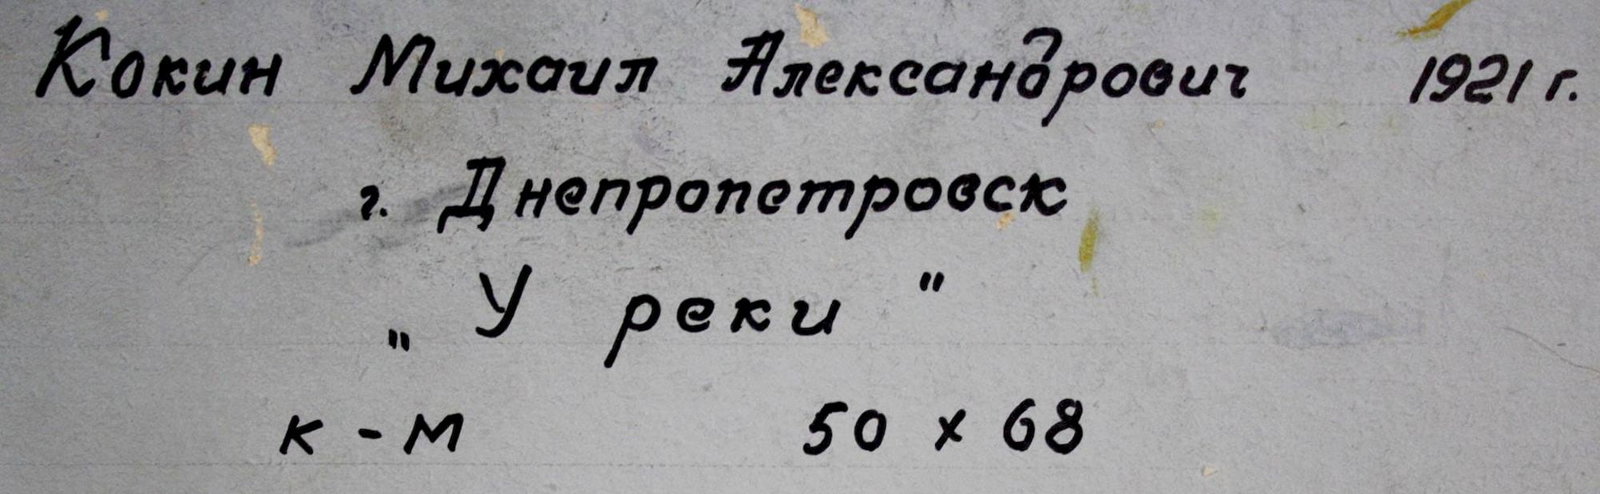 Кокин Михаил Александрович 1921 г.
г. Днепропетровск
„ У реки "
к - м 50 x 68